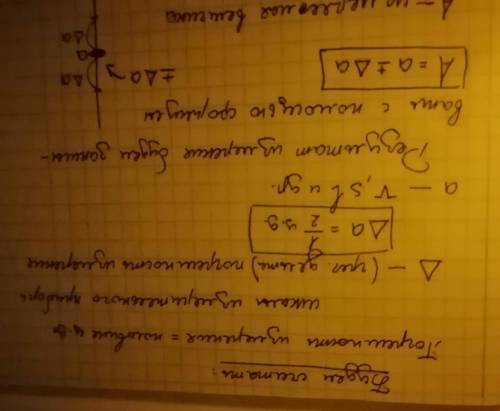 Будем считать:
Погрешность измерения = половине ц.д.
шкалы измерительного прибора
Δ — (греч. дельта) погрешность измерения
Δa = 1/2 ц.д.
a — V, S, l и др.
Результат измерение будем записы-
вать с помощью формулы
A = a ± Δa
± Δa
Δa
a
Δa
A — измеряемая величина